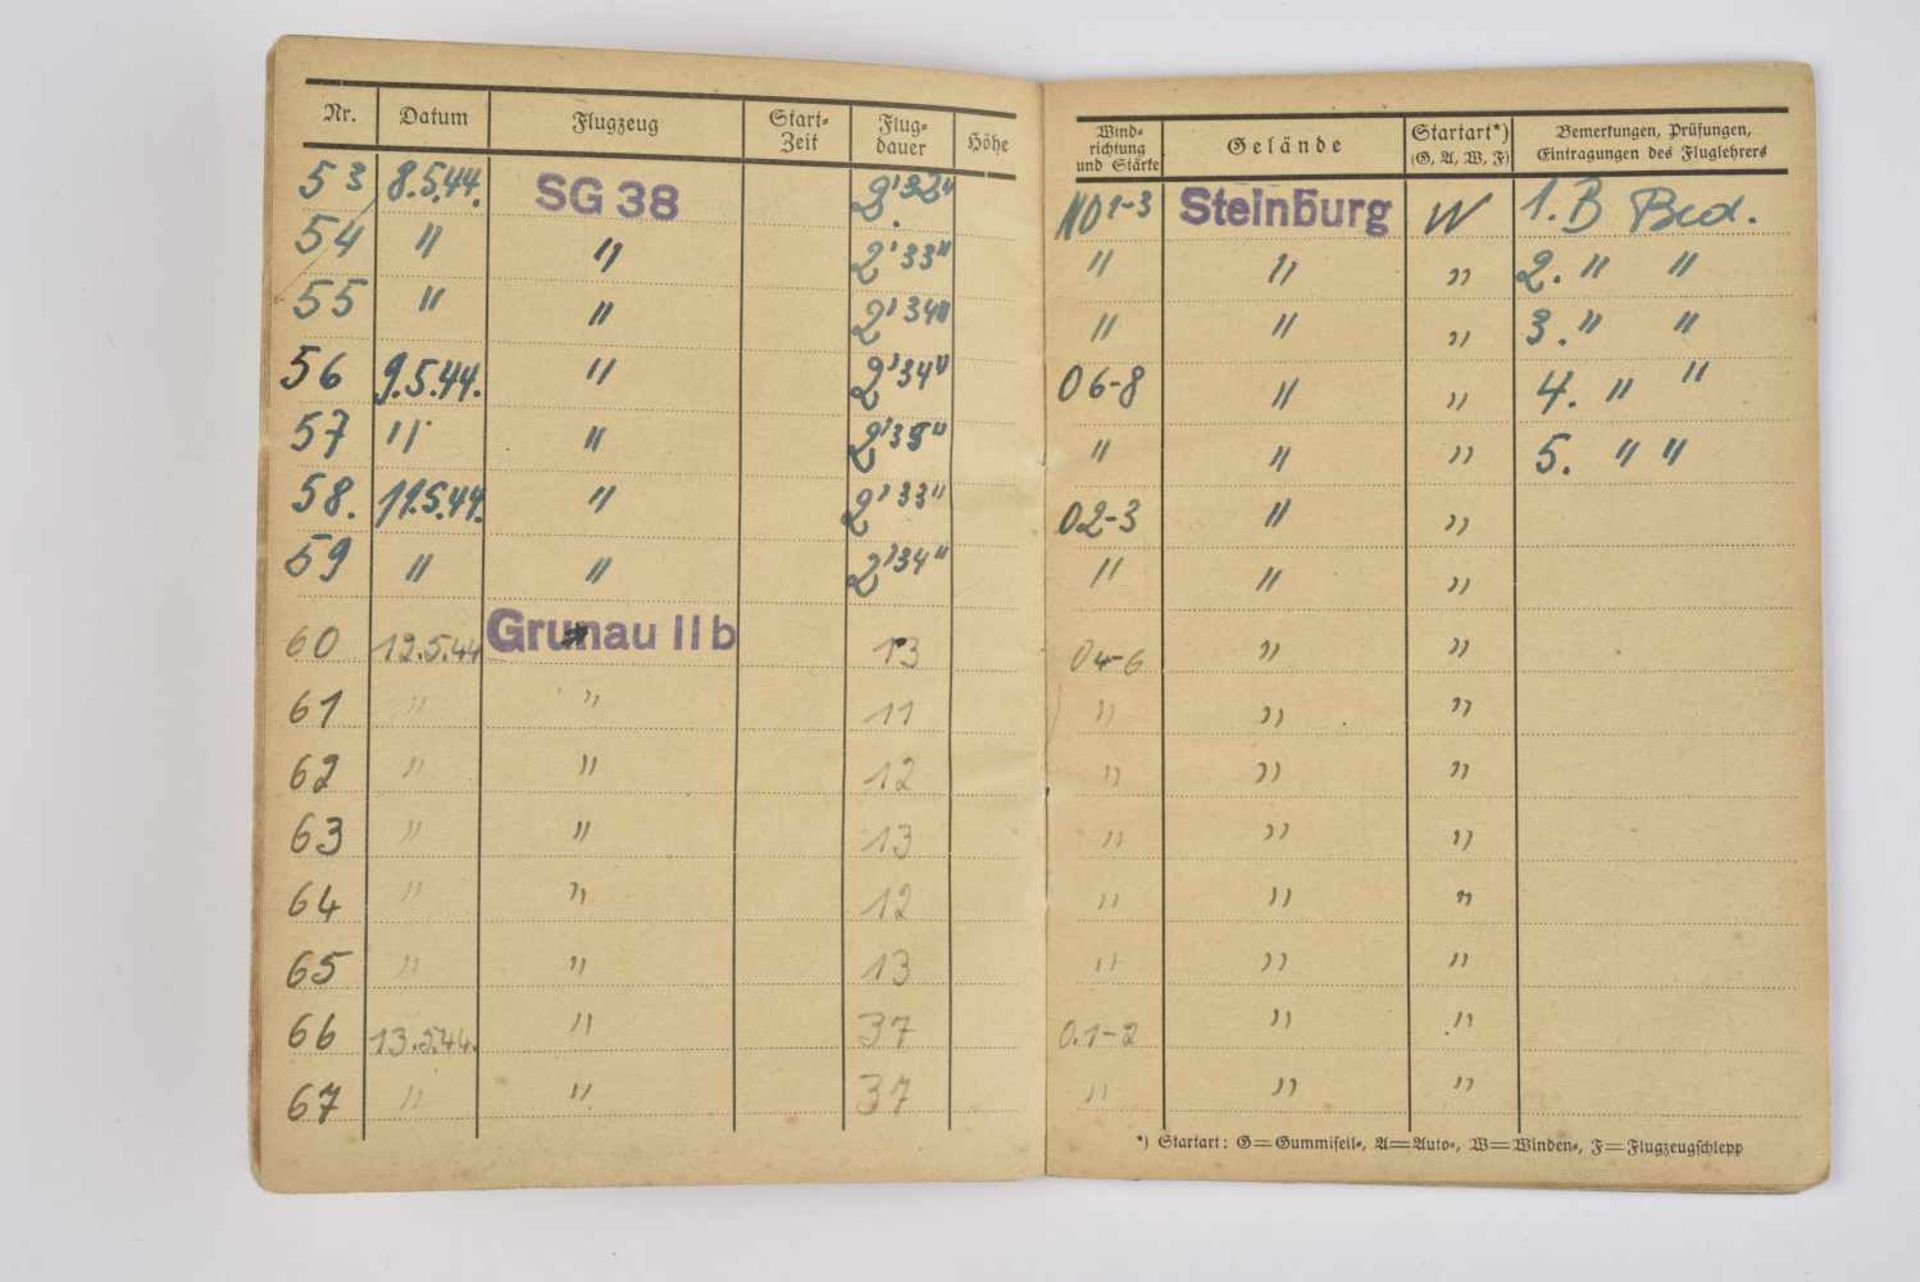 Nr. Datum Flugzeug Start-Zeit Flug-dauer Höhe Wind-richtung und Stärke Gelände Startart*) (G, A, W, F) Bemerkungen, Prüfungen, Eintragungen des Fluglehrers
53 8.5.44. SG 38 2'32" NO 1-3 Steinburg W 1. B Bed.
54 " " 2'33" " " " 2. " "
55 " " 2'34" " " " 3. " "
56 9.5.44. " 2'34" O 6-8 " " 4. " "
57 " " 2'35" " " " 5. " "
58. 11.5.44. " 2'33" O 2-3 " "
59 " " 2'34" " " "
60 12.5.44 Grunau IIb 13 O 4-6 " "
61 " " 11 " " "
62 " " 12 " " "
63 " " 13 " " "
64 " " 12 " " "
65 " " 13 " " "
66 13.5.44. " 37 O.1-2 " "
67 " " 37 " " "
*) Startart: G=Gummiseil-, A=Auto-, W=Winden-, F=Flugzeugschlepp